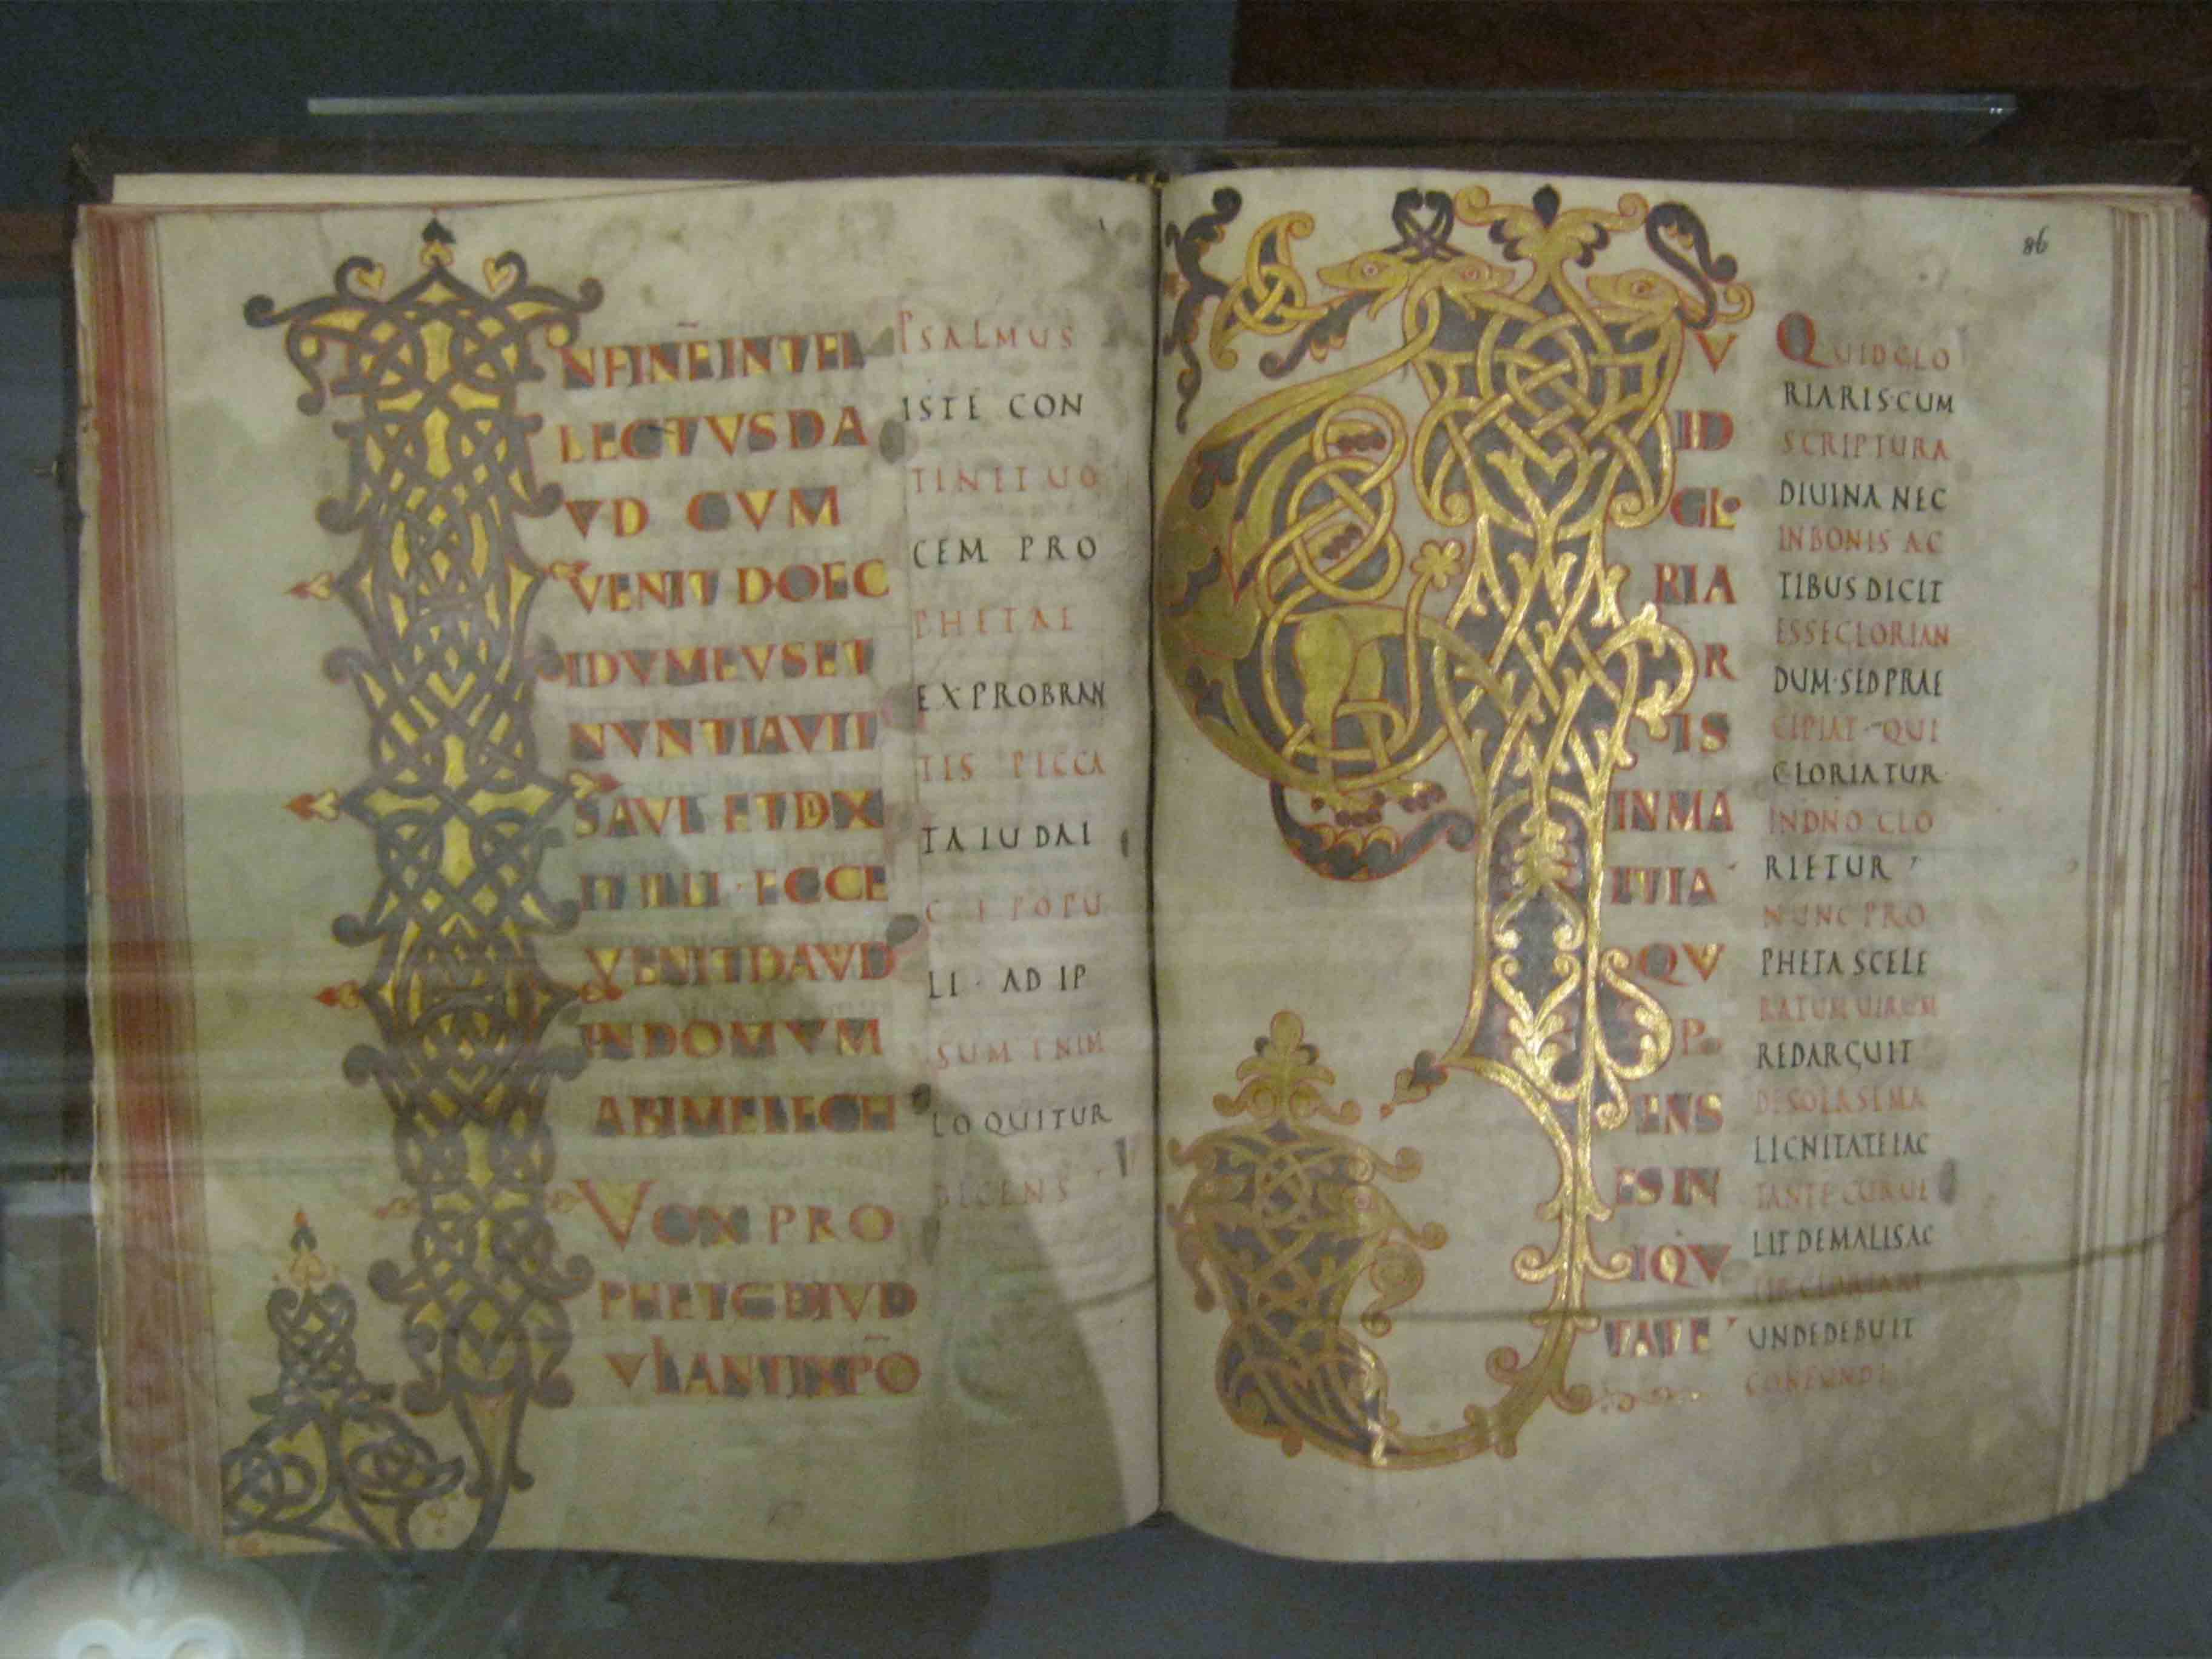 INFINE INTEL
LECTVS DA
VD CVM
VENIT DOEC
IDVMEVS ET
NVNTIAVIT
SAVL ET DIX
IT ILLI · ECCE
VENIT DAVD
IN DOMVM
ABIMELECH
VOX PRO
VLANTI XPO
PSALMUS
ISTE CON
TINET UO
CEM PRO
PHETAE
EXPROBRAN
TIS PECCA
TA IUDAI
CI POPU
LI · AD IP
SUM ENIM
LOQUITUR
DICENS
86
QV
ID
GLO
RIA
R
IS
IN MA
LITIA
QV
I P
ENS
ES IN
IQV
TATE
QUID GLO
RIARIS · CUM
SCRIPTURA
DIUINA NEC
IN BONIS AC
TIBUS DICIT
ESSE GLORIAN
DUM · SED PRAE
CIPIAT · QUI
GLORIATUR
IN DNO GLO
RIETUR
NUNC PRO
PHETA SCELE
RATUM UIRUM
REDARGUIT
DE SOLA SE MA
LIGNITATE IAC
TANTE CUR UE
LIT DE MALIS AC
GLORIARI
UNDE DEBUIT
CONFUNDI